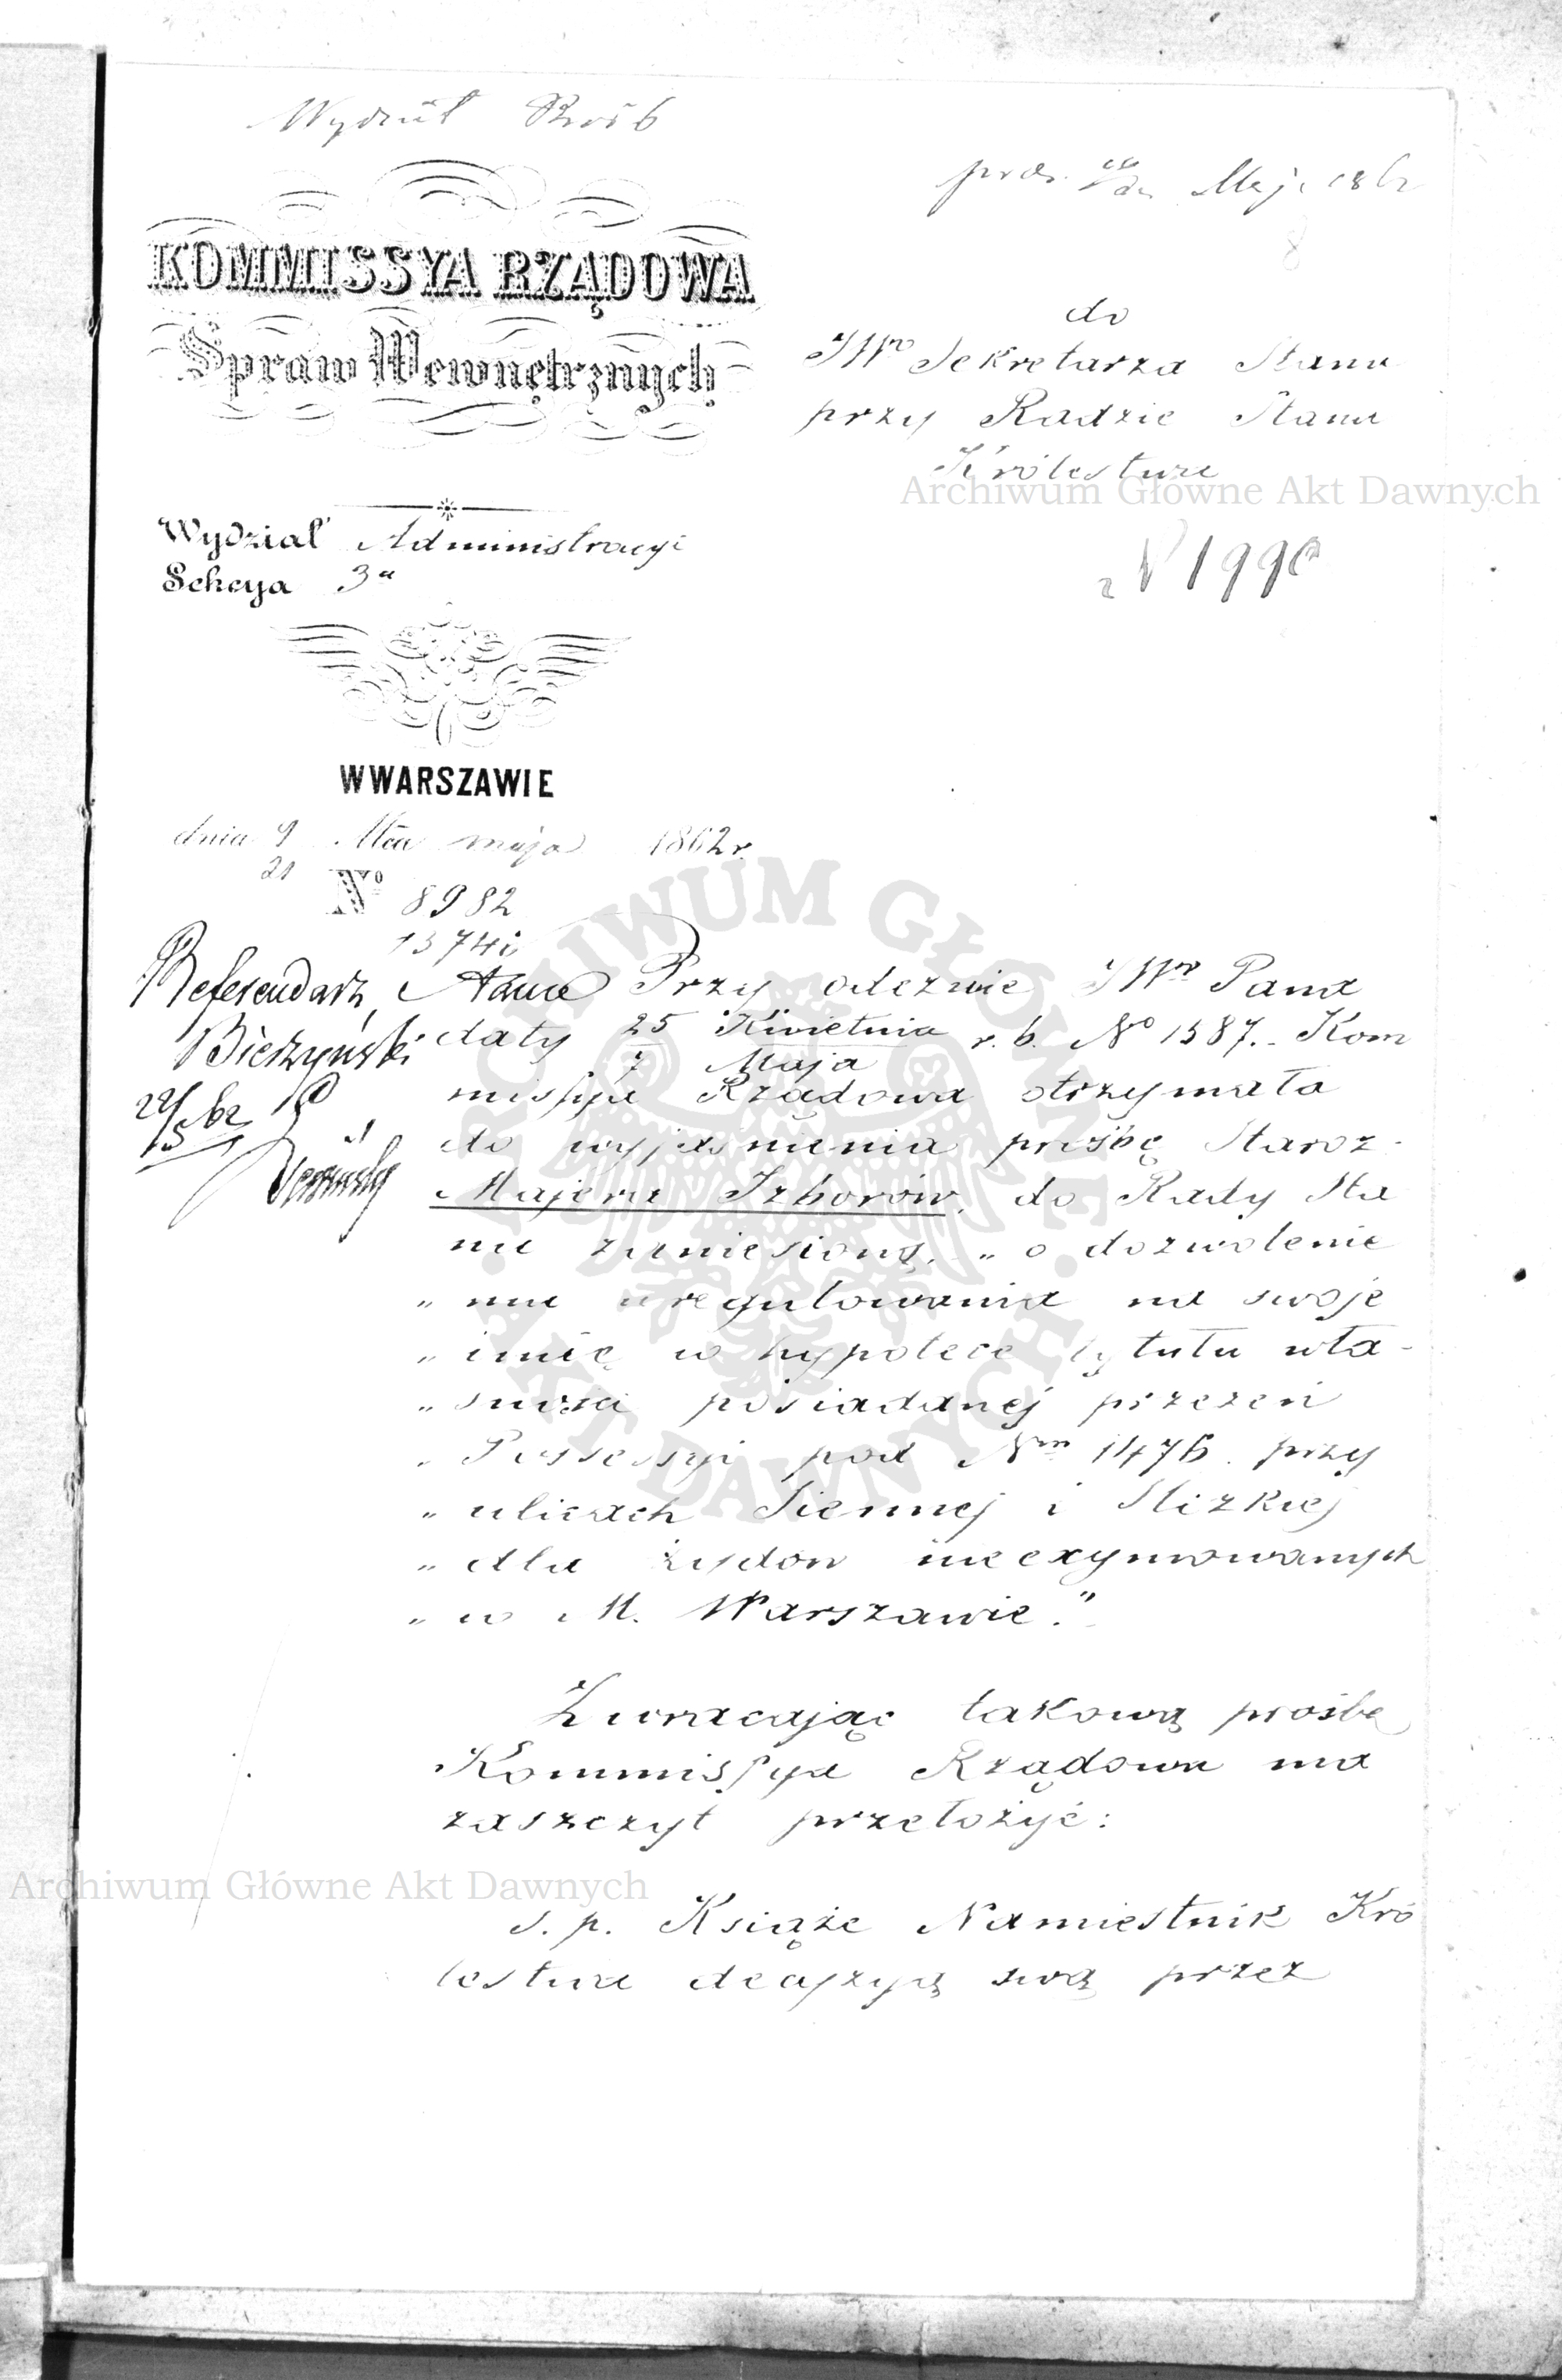 Wydział Próśb
prez. Maja 1862
8
KOMMISSYA RZĄDOWA
Spraw Wewnętrznych
do
JWo Sekretarza Stanu
przy Radzie Stanu
Królestwa
Archiwum Główne Akt Dawnych
N 1990
Wydział Administracyi
Sekcya 3a
WWARSZAWIE
dnia 9/21 Mca maja 1862 r.
No 8982
Referendarz Stanu
Bieczyński
22/5 62
Przy odezwie JWo Pana
daty 25 Kwietnia / 7 Maja r. b. No 1387. Kom
missya Rządowa otrzymała
do wyjaśnienia prośbę Staroz.
Majera Izborów, do Rady Sta
nu zaniesioną, „o dozwolenie
„mu uregulowania na swoje
„imię w hypotece tytułu wła-
„sności posiadanej przezeń
„Possessyi pod Nrm 1476. przy
„ulicach Siennej i Slizkiej
„dla żydów nieexymowanych
„w M. Warszawie."
Zwracając takową prośbę
Kommissya Rządowa ma
zaszczyt przełożyć:
Archiwum Główne Akt Dawnych
s. p. Książe Namiestnik Kró
lestwa decyzyą swą przez
ARCHIWUM GŁÓWNE · AKT DAWNYCH ·